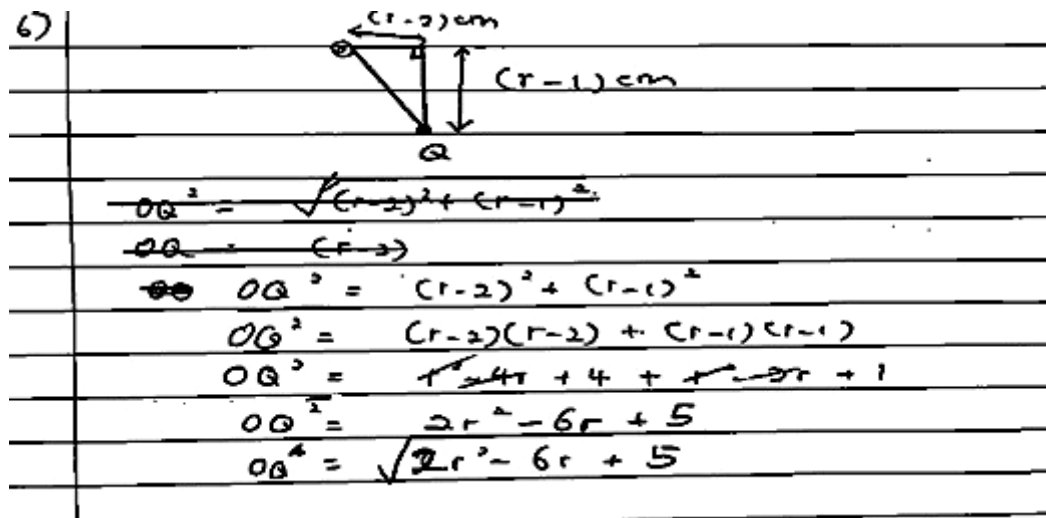 6)
(r-2) cm
O
(r-1) cm
Q
OQ² = √(r-2)² + (r-1)²
OQ (r-2)
OQ² = (r-2)² + (r-1)²
OQ² = (r-2)(r-2) + (r-1)(r-1)
OQ² = r² - 4r + 4 + r² - 2r + 1
OQ² = 2r² - 6r + 5
OQ = √2r² - 6r + 5